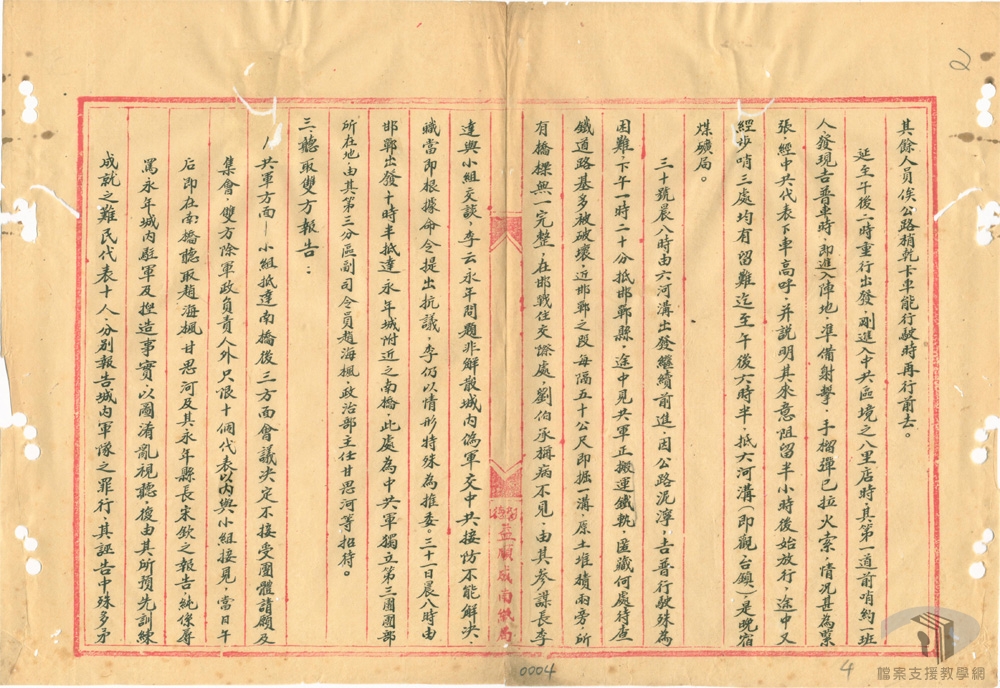 2
其餘人員俟公路稍乾卡車能行駛時再行前去。
延至午後二時重行出發，剛進入中共區境之八里店時其第一道前哨約一班
人，發現吉普車時，即進入陣地，準備射擊，手榴彈已拉火索，情況甚為緊
張，經中共代表下車高呼，并説明其來意，阻留半小時後始放行，途中又
經步哨三處均有留難迄至午後六時半，抵六河溝（即觀台鎮），是晚宿
煤礦局。
三十號晨八時由六河溝出發繼續前進，因公路泥濘，吉普行駛殊為
困難，下午一時二十分抵邯鄲縣，途中見共軍正搬運鐵軌，匿藏何處待查
鐵道路基多被破壞，近邯鄲之段每隔五十公尺即掘一溝，原土堆積兩旁，所
有橋樑無一完整，在邯戰住交際處，劉伯承稱病不見，由其參謀長李
達與小組交談，李云永年問題非解散城內偽軍交中共接防不能解決，
職當即根據命令提出抗議，李仍以情形特殊為推委。三十一日晨八時由
邯鄲出發十時半抵達永年城附近之南橋此處為中共軍獨立第三團團部
所在地，由其第三分區副司令員趙海楓，政治部主任甘思河等招待。
三、聽取雙方報告：
1 共軍方面—小組抵達南橋後三方面會議決定不接受團體請願及
集會，雙方除軍政負責人外只限十個代表以內與小組接見，當日午
后即在南橋聽取趙海楓甘思河及其永年縣長宋欽之報告，純係辱
罵永年城內駐軍及捏造事實，以圖淆亂視聽，復由其所預先訓練
成就之難民代表十人，分別報告城內軍隊之罪行，其誣告中殊多矛
益順成南紙局
0004
4
檔案支援教學網